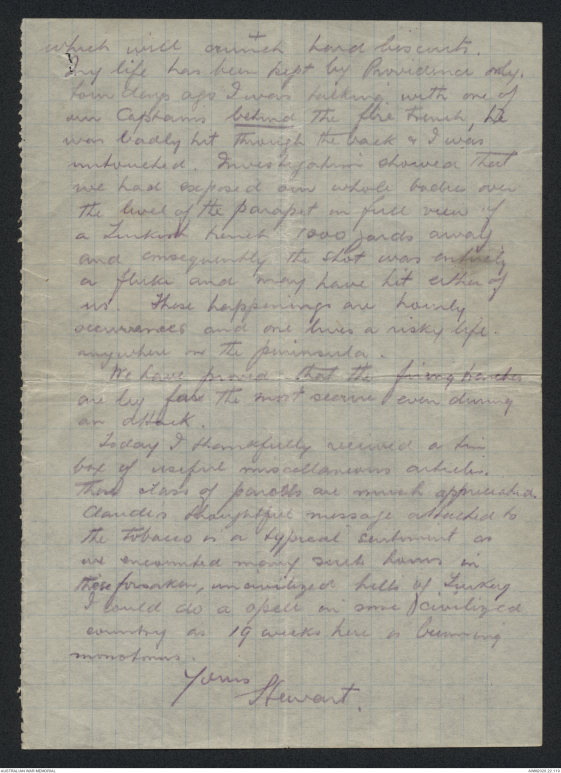 which will crunch hard biscuits.
My life has been kept by Providence only.
Four days ago I was talking with one of
our Captains behind the fire trench, he
was badly hit through the back & I was
untouched. Investigation showed that
we had exposed our whole bodies over
the level of the parapet in full view of
a Turkish trench 1000 yards away
and consequently the shot was entirely
a fluke and may have hit either of
us. These happenings are hourly
occurrences and one lives a risky life
anywhere on the peninsula.
We have proved that the firing trenches
are by far the most secure even during
an attack.
Today I thankfully received a tin
box of useful miscellaneous articles.
These class of parcels are much appreciated.
Claude's thoughtful message attached to
the tobacco is a typical sentiment as
we encounted many such homes in
these forsaken, uncivilized hills of Turkey
I could do a spell in some civilized
country as 19 weeks here is becoming
monotonous.
Yours
Stewart.
AUSTRALIAN WAR MEMORIAL